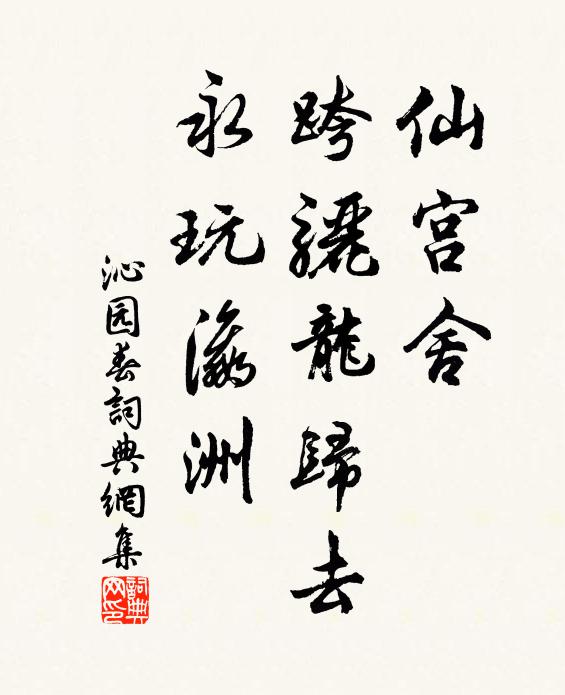 仙宫舍
跨骊龍歸去
永玩瀛洲
沁园春詞典網集
詞典网印